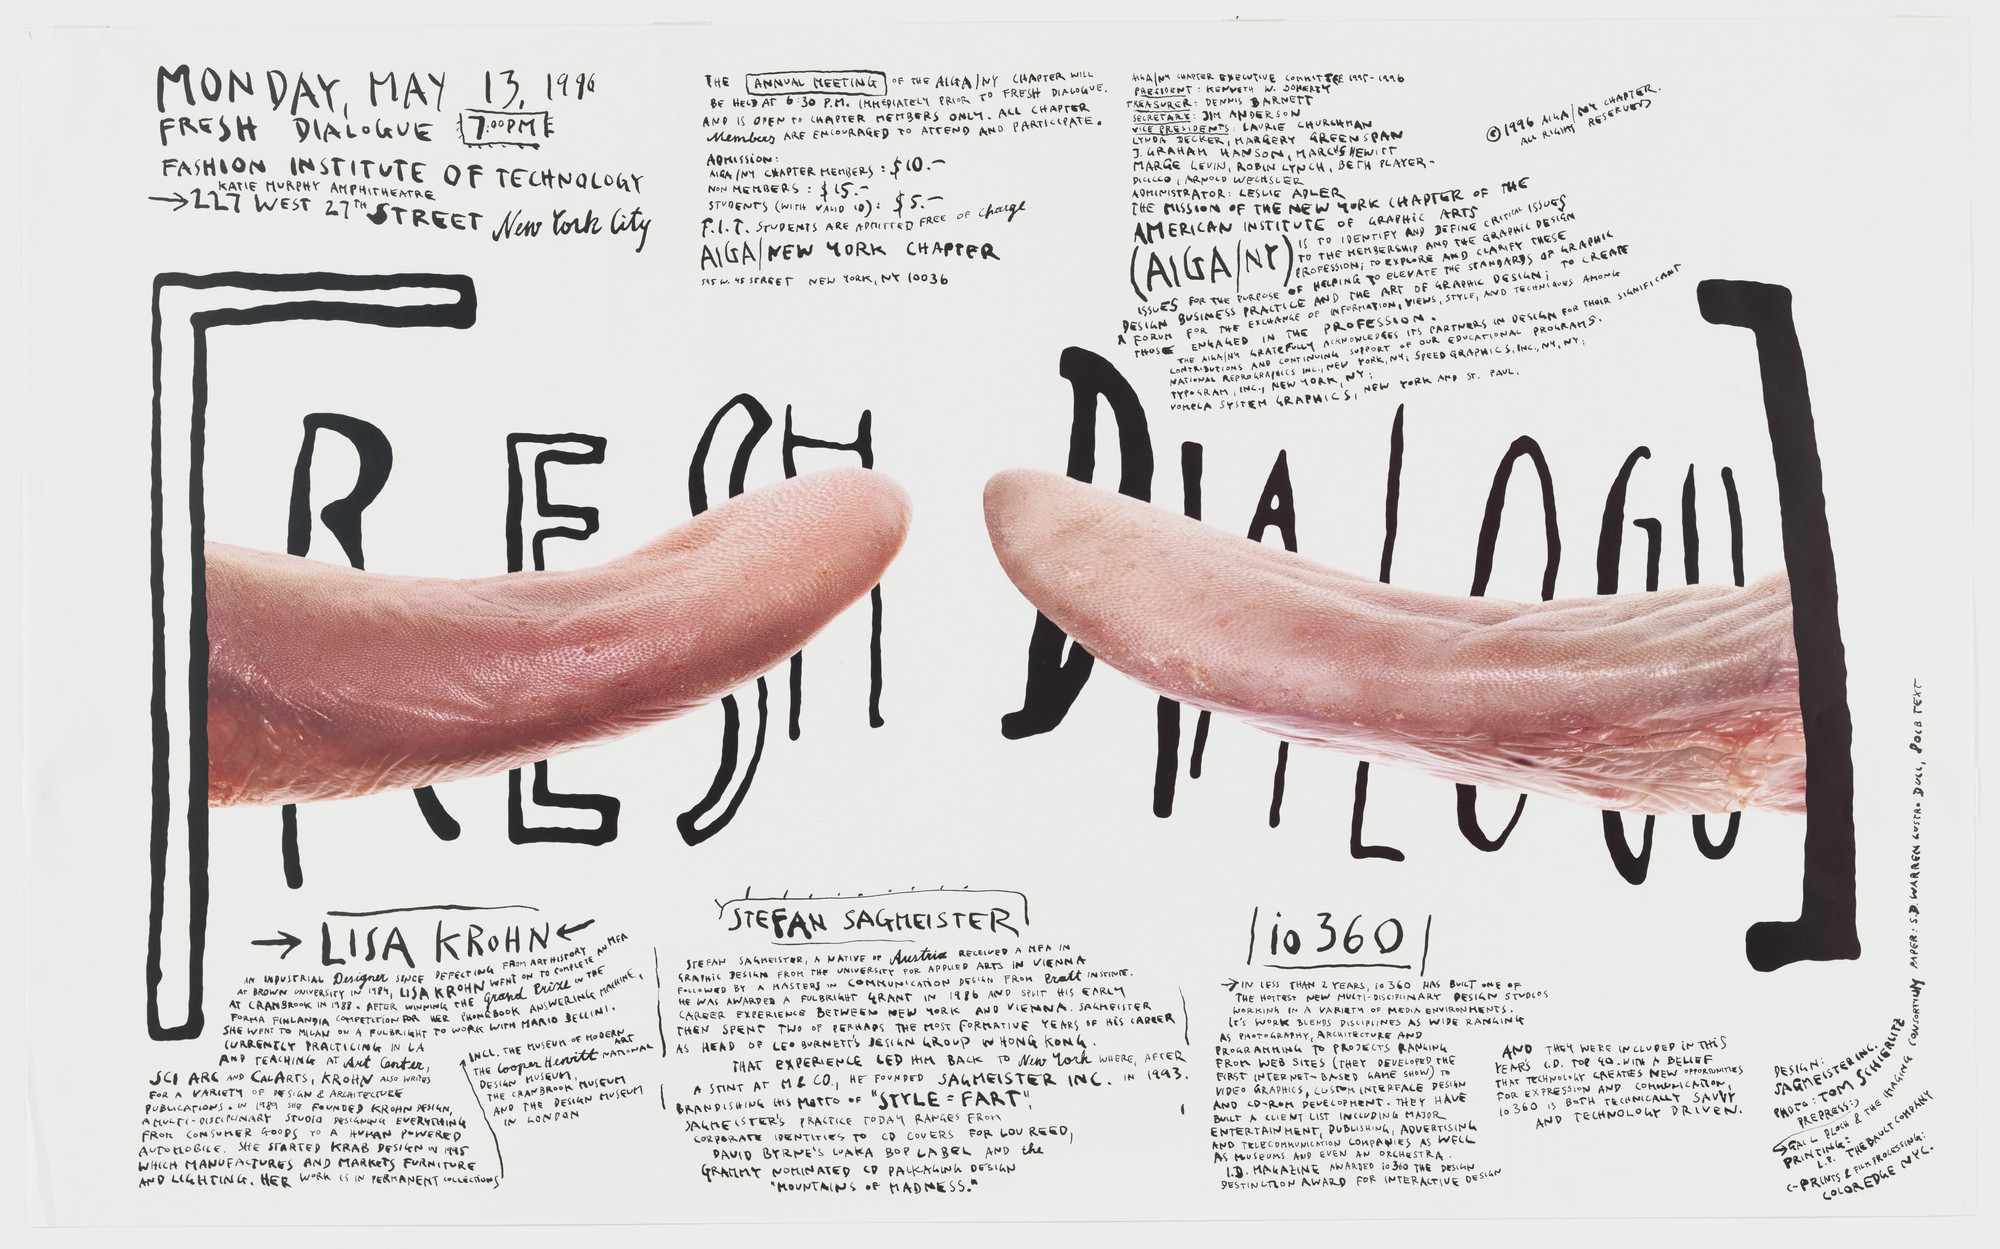 MONDAY, MAY 13, 1996
FRESH DIALOGUE 7:00PM
FASHION INSTITUTE OF TECHNOLOGY
KATIE MURPHY AMPHITHEATRE
→227 WEST 27TH STREET New York City
THE ANNUAL MEETING OF THE AIGA/NY CHAPTER WILL
BE HELD AT 6:30 P.M. IMMEDIATELY PRIOR TO FRESH DIALOGUE.
AND IS OPEN TO CHAPTER MEMBERS ONLY. ALL CHAPTER
Members ARE ENCOURAGED TO ATTEND AND PARTICIPATE.
ADMISSION:
AIGA/NY CHAPTER MEMBERS: $10.–
NON MEMBERS: $15.–
STUDENTS (WITH VALID ID): $5.–
F.I.T. STUDENTS ARE ADMITTED FREE OF charge
AIGA/NEW YORK CHAPTER
545 W. 45 STREET NEW YORK, NY 10036
AIGA/NY CHAPTER EXECUTIVE COMMITTEE 1995-1996
PRESIDENT: KENNETH W. DOHERTY
TREASURER: DENNIS BARNETT
SECRETARY: JIM ANDERSON
VICE PRESIDENTS: LAURIE CHURCHMAN
LYNDA DECKER, MARGERY GREENSPAN
J. GRAHAM HANSON, MARCUS HEWITT
MARGE LEVIN, ROBIN LYNCH, BETH PLAYER-
DICICCO, ARNOLD WECHSLER
ADMINISTRATOR: LESLIE ADLER
THE MISSION OF THE NEW YORK CHAPTER OF THE
AMERICAN INSTITUTE OF GRAPHIC ARTS
(AIGA/NY) IS TO IDENTIFY AND DEFINE CRITICAL ISSUES
TO THE MEMBERSHIP AND THE GRAPHIC DESIGN
PROFESSION; TO EXPLORE AND CLARIFY THESE
ISSUES FOR THE PURPOSE OF HELPING TO ELEVATE THE STANDARDS OF GRAPHIC
DESIGN BUSINESS PRACTICE AND THE ART OF GRAPHIC DESIGN; TO CREATE
A FORUM FOR THE EXCHANGE OF INFORMATION, VIEWS, STYLE, AND TECHNIQUES AMONG
THOSE ENGAGED IN THE PROFESSION.
THE AIGA/NY GRATEFULLY ACKNOWLEDGES ITS PARTNERS IN DESIGN FOR THEIR SIGNIFICANT
CONTRIBUTIONS AND CONTINUING SUPPORT OF OUR EDUCATIONAL PROGRAMS.
NATIONAL REPROGRAPHICS INC., NEW YORK, NY; SPEED GRAPHICS, INC., NY, NY;
TYPOGRAM, INC., NEW YORK, NY;
VOMELA SYSTEM GRAPHICS, NEW YORK AND ST. PAUL.
©1996 AIGA/NY CHAPTER.
ALL RIGHTS RESERVED
[FRESH DIALOGU]
→ LISA KROHN ←
AN INDUSTRIAL Designer SINCE DEFECTING FROM ART HISTORY
AT BROWN UNIVERSITY IN 1984, LISA KROHN WENT ON TO COMPLETE AN MFA
AT CRANBROOK IN 1988. AFTER WINNING THE Grand Prize IN THE
FORMA FINLANDIA COMPETITION FOR HER PHONEBOOK ANSWERING MACHINE,
SHE WENT TO MILAN ON A FULBRIGHT TO WORK WITH MARIO BELLINI.
CURRENTLY PRACTICING IN LA
AND TEACHING AT Art Center,
SCI ARC AND CALARTS, KROHN ALSO WRITES
FOR A VARIETY OF DESIGN & ARCHITECTURE
PUBLICATIONS. IN 1989 SHE FOUNDED KROHN DESIGN,
A MULTI-DISCIPLINARY STUDIO DESIGNING EVERYTHING
FROM CONSUMER GOODS TO A HUMAN POWERED
AUTOMOBILE. SHE STARTED KRAB DESIGN IN 1995
WHICH MANUFACTURES AND MARKETS FURNITURE
AND LIGHTING. HER WORK IS IN PERMANENT COLLECTIONS
INCL. THE MUSEUM OF MODERN ART
THE Cooper Hewitt NATIONAL
DESIGN MUSEUM,
THE CRANBROOK MUSEUM
AND THE DESIGN MUSEUM
IN LONDON
STEFAN SAGMEISTER
STEFAN SAGMEISTER, A NATIVE OF Austria RECEIVED A MFA IN
GRAPHIC DESIGN FROM THE UNIVERSITY FOR APPLIED ARTS IN VIENNA
FOLLOWED BY A MASTERS IN COMMUNICATION DESIGN FROM Pratt INSTITUTE.
HE WAS AWARDED A FULBRIGHT GRANT IN 1986 AND SPLIT HIS EARLY
CAREER EXPERIENCE BETWEEN NEW YORK AND VIENNA. SAGMEISTER
THEN SPENT TWO OF PERHAPS THE MOST FORMATIVE YEARS OF HIS CAREER
AS HEAD OF LEO BURNETT'S DESIGN GROUP IN HONG KONG.
THAT EXPERIENCE LED HIM BACK TO New York WHERE, AFTER
A STINT AT M & CO., HE FOUNDED SAGMEISTER INC. IN 1993.
BRANDISHING HIS MOTTO OF "STYLE = FART",
SAGMEISTER'S PRACTICE TODAY RANGES FROM
CORPORATE IDENTITIES TO CD COVERS FOR LOU REED,
DAVID BYRNE'S LUAKA BOP LABEL AND the
GRAMMY NOMINATED CD PACKAGING DESIGN
"MOUNTAINS OF MADNESS."
/io 360/
→ IN LESS THAN 2 YEARS, io 360 HAS BUILT ONE OF
THE HOTTEST NEW MULTI-DISCIPLINARY DESIGN STUDIOS
WORKING IN A VARIETY OF MEDIA ENVIRONMENTS.
IT'S WORK BLENDS DISCIPLINES AS WIDE RANGING
AS PHOTOGRAPHY, ARCHITECTURE AND
PROGRAMMING TO PROJECTS RANGING
FROM WEB SITES (THEY DEVELOPED THE
FIRST INTERNET-BASED GAME SHOW) TO
VIDEO GRAPHICS, CUSTOM INTERFACE DESIGN
AND CD-ROM DEVELOPMENT. THEY HAVE
BUILT A CLIENT LIST INCLUDING MAJOR
ENTERTAINMENT, PUBLISHING, ADVERTISING
AND TELECOMMUNICATION COMPANIES AS WELL
AS MUSEUMS AND EVEN AN ORCHESTRA.
I.D. MAGAZINE AWARDED io 360 THE DESIGN
DISTINCTION AWARD FOR INTERACTIVE DESIGN
AND THEY WERE INCLUDED IN THIS
YEAR'S I.D. TOP 40. WITH A BELIEF
THAT TECHNOLOGY CREATES NEW OPPORTUNITIES
FOR EXPRESSION AND COMMUNICATION,
io 360 IS BOTH TECHNICALLY SAVVY
AND TECHNOLOGY DRIVEN.
DESIGN:
SAGMEISTER INC.
PHOTO: TOM SCHIERLITZ
PREPRESS:
→ GAIL BLOCH & THE IMAGING CONSORTIUM
PRINTING:
L.P. THEBAULT COMPANY
C-PRINTS & FILM PROCESSING:
COLOREDGE NYC.
PAPER: S.D. WARREN LUSTRO DULL, 80LB TEXT